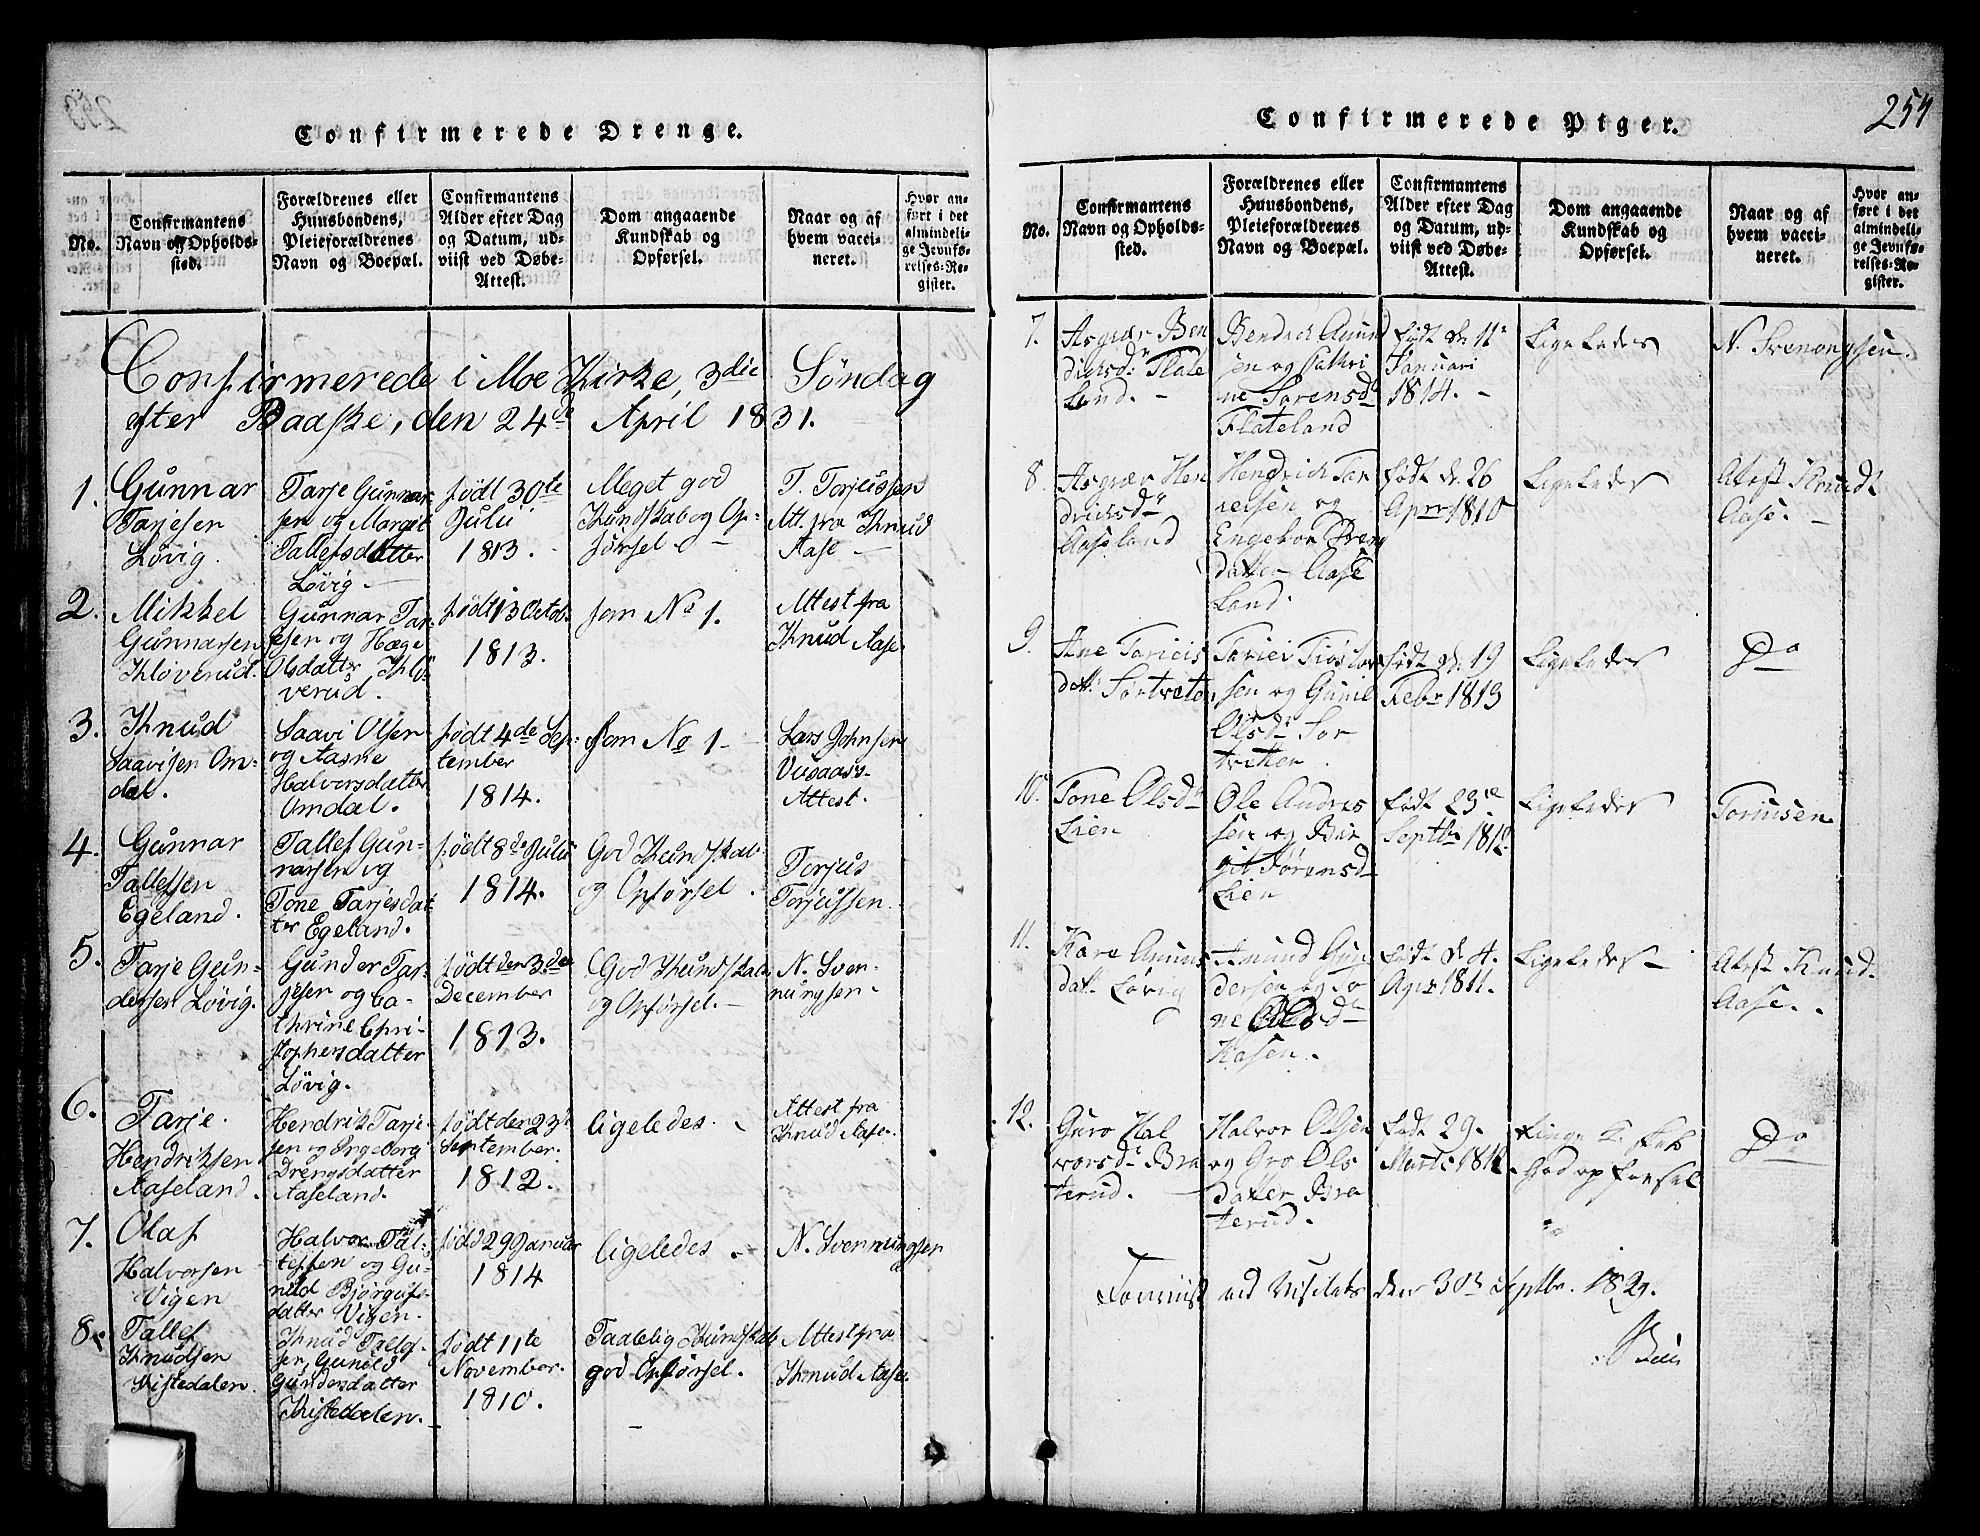 Confirmerede Drenge.
No.
Confirmantens
Navn og Opholds-
sted.
Forældrenes eller
Huusbondens,
Pleieforældrenes
Navn og Boepæl.
Confirmantens
Alder efter Dag
og Datum, ud-
viist ved Døbe-
Attest.
Dom angaaende
Kundskab og
Opførsel.
Naar og af
hvem vacci-
neret.
Hvor an-
ført i det
almindeli-
ge Jevnfø-
relses-Re-
gister.
Confirmerede i Moe Kirke, 3die Søndag
efter Paaske, den 24de April 1831.
1.
Gunnar
Tarjesen
Løvig.
Tarje Gunnar-
sen og Margit
Tallefsdatter
Løvig.
født 30te
Julii
1813.
Meget god
Kundskab og Op-
førsel.
T. Torjussen
Att. fra Knud
Aase
2.
Mikkel
Gunnarsen
Kløverud.
Gunnar Tar-
jesen og Hæge
Olsdatter Klø-
verud.
født 13 Octob.
1813.
som No 1.
Attest fra
Knud Aase.
3.
Knud
Saavisen Om-
dal.
Saavi Olsen
og Aasne
Halvorsdatter
Omdal.
født 4de Sep-
tember
1814.
som No 1
Lars Johnsen
Attest.
4.
Gunnar
Tallefsen
Egeland.
Tallef Gun-
narsen og
Tone Tarjesdat-
ter Egeland.
født 8de Julii
1814.
God Kundskab
og Opførsel.
Torjus
Torjussen.
5.
Tarje Gun-
dersen Løvig.
Gunder Tar-
jesen og Ca-
thrine Chri-
stophersdatter
Løvig.
født den 3de
December
1813.
God Kundskab
og Opførsel.
N. Sven-
nungsen.
6.
Tarje
Hendriksen
Aaseland.
Hendrik Tarje-
sen og Ingeborg
Drengsdatter
Aaseland.
født den 23de
September.
1812.
ligeledes.
Attest fra
Knud Aase.
7.
Olaf
Halvorsen
Vigen
Halvor Tal-
lefsen og Gu-
nild Bjørgufs-
datter Vigen.
født 29 Januar
1814
ligeledes
N. Svennungsen
8.
Tallef
Knudsen
Kistedalen.
Knud Tallef-
sen, Gunild
Gundersdatter
Kistedalen.
født 11te
November.
1810.
Taalelig Kundskab
god Opførsel.
Attest fra
Knud Aase.
254
Confirmerede Piger.
No.
Confirmantens
Navn og Opholds-
sted.
Forældrenes eller
Huusbondens,
Pleieforældrenes
Navn og Boepæl.
Confirmantens
Alder efter Dag
og Datum, ud-
viist ved Døbe-
Attest.
Dom angaaende
Kundskab og
Opførsel.
Naar og af
hvem vacci-
neret.
Hvor an-
ført i det
almindeli-
ge Jevnfø-
relses-Re-
gister.
7.
Asgjær Ben
dichsdr Flate
land.
Bendich Amund
sen og Cathri
ne Sørensdr
Flateland
født d. 11te
Januari
1814.
Ligeledes
N. Svenongsen.
8.
Asgjær Hen
drichsdr
Aaseland
Hendrich Tar
jeisen og
Engebor Dreng
datter Aase
land.
født d. 26
Apr 1810
Ligeledes
Atest Knud
Aase.
9.
Ane
datr
sen og Gunil
Olsdr
født d. 19
Febr 1813
Ligeledes
Do
10.
Tone Olsdr
Lien
Ole Andres
sen og Bir
git Sørensdr
Lien
født 23de
Septbr 1812.
Ligeledes
Toriusen
11.
Kare Amuns
datr Løvig
Amund Gun
dersen og To
ne Olsdr
Hasen.
født d. 4.
Apr 1811.
Ligeledes
Atest Knud
Aase.
12.
Guro Hal
vorsdr Bra
terud.
Halvor Olsen
og Gro Ols
datter Bra
terud.
født 29.
Marti 1812
God opførsel
Do
ved Visitats den 30te Septbr. 1829.